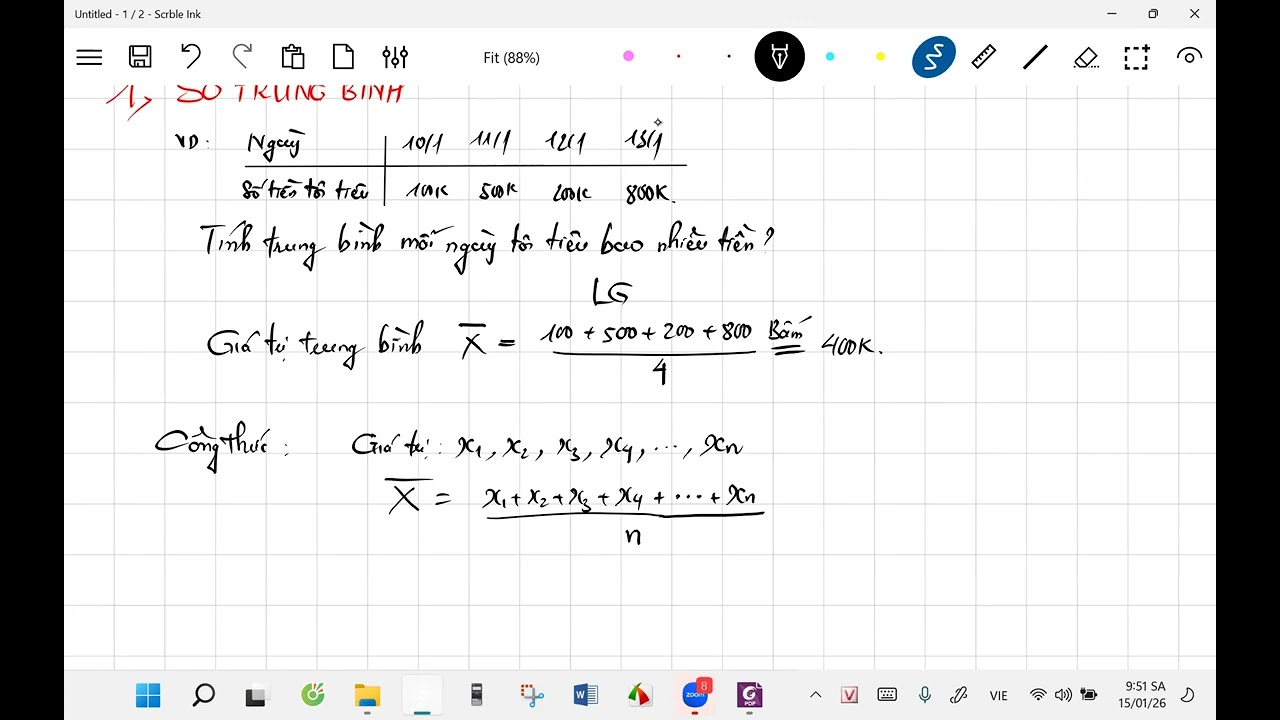 Untitled - 1 / 2 - Scrble Ink
Fit (88%)
1, SỐ TRUNG BÌNH
VD: Ngày 10/1 11/1 12/1 13/1
Số tiền tôi tiêu 100K 500K 200K 800K.
Tính trung bình mỗi ngày tôi tiêu bao nhiêu tiền?
LG
Giá trị trung bình X̅ = (100 + 500 + 200 + 800) / 4 Bấm = 400K.
Công thức: Giá trị: x₁, x₂, x₃, x₄, ..., xₙ
X̅ = (x₁ + x₂ + x₃ + x₄ + ... + xₙ) / n
8
VIE
9:51 SA
15/01/26